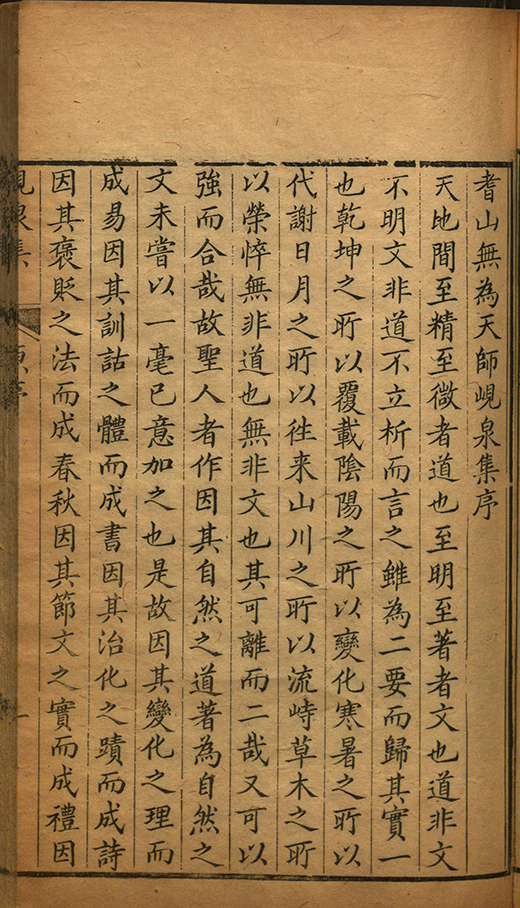 耆山無為天師峴泉集序
天地間至精至微者道也至明至著者文也道非文
不明文非道不立析而言之雖為二要而歸其實一
也乾坤之所以覆載陰陽之所以變化寒暑之所以
代謝日月之所以徃来山川之所以流峙草木之所
以榮悴無非道也無非文也其可離而二哉又可以
強而合哉故聖人者作因其自然之道著為自然之
文未嘗以一毫已意加之也是故因其變化之理而
成易因其訓詁之體而成書因其治化之蹟而成詩
因其褒貶之法而成春秋因其節文之實而成禮因
峴泉集
序
一